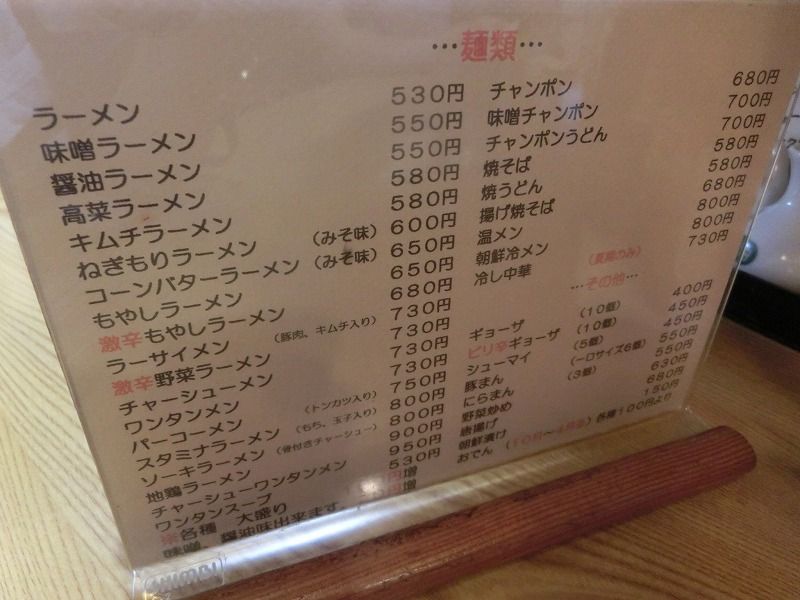 …麺類…
ラーメン 530円
味噌ラーメン 550円
醤油ラーメン 550円
高菜ラーメン 580円
キムチラーメン 580円
ねぎもりラーメン (みそ味) 600円
コーンバターラーメン (みそ味) 650円
もやしラーメン 650円
激辛もやしラーメン 680円
ラーサイメン 730円
激辛野菜ラーメン (豚肉、キムチ入り) 730円
チャーシューメン 730円
ワンタンメン 730円
パーコーメン (トンカツ入り) 750円
スタミナラーメン (もち、玉子入り) 800円
ソーキラーメン (骨付きチャーシュー) 800円
地鶏ラーメン 900円
チャーシューワンタンメン 950円
ワンタンスープ 530円
※各種 大盛り 円増
味噌、醤油味出来ます。 円増
チャンポン 680円
味噌チャンポン 700円
チャンポンうどん 700円
焼そば 580円
焼うどん 580円
揚げ焼そば 680円
温メン 800円
朝鮮冷メン 800円
冷し中華 (夏期のみ) 730円
…その他…
ギョーザ (10個) 400円
ピリ辛ギョーザ (10個) 450円
シューマイ (5個) 450円
豚まん (一口サイズ6個) 550円
にらまん (3個) 550円
野菜炒め 630円
唐揚げ 680円
朝鮮漬け 150円
おでん (10月〜4月) 各種100円より